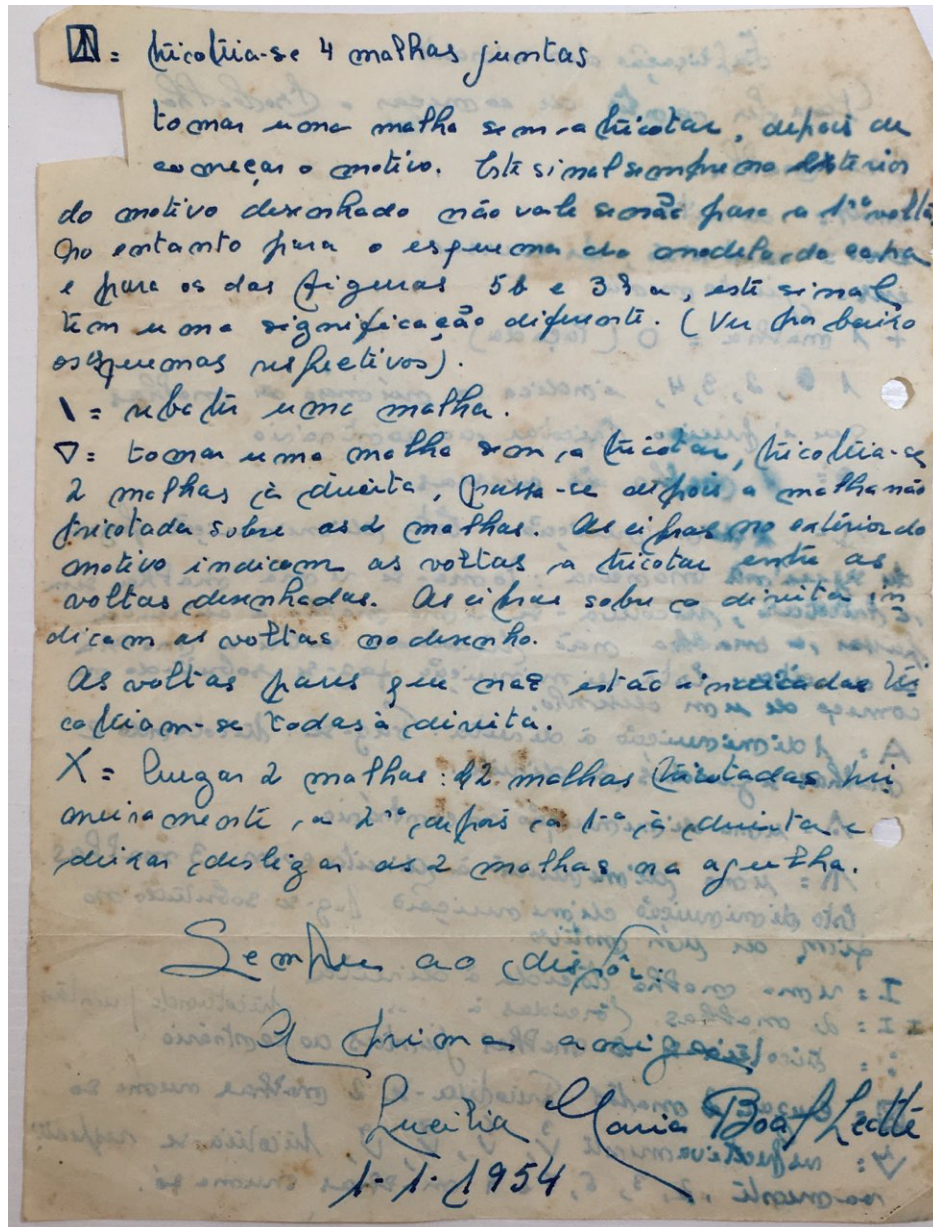 = tricotia-se 4 malhas juntas
tomar uma malha sem a tricotar, depois de
começar o motivo. Este sinal sempre no exterior
do motivo desenhado não vale senão para a 1ª volta,
no entanto para o esquema do modelo da capa
e para os das figuras 5b e 33a, este sinal
tem uma significação diferente. (Ver por baixo
os esquemas respectivos).
\ = rebater uma malha.
▽ = tomar uma malha sem a tricotar, tricotia-se
2 malhas à direita, passa-se depois a malha não
tricotada sobre as 2 malhas. As cifras no exterior do
motivo indicam as voltas a tricotar entre as
voltas desenhadas. As cifras sobre a direita in
dicam as voltas no desenho.
As voltas pares que não estão indicadas tri
cotiam-se todas à direita.
X = 2 malhas: 2 malhas tricotadas pri
meiramente, a 2ª, depois a 1ª à direita e
deixar deslizar as 2 malhas na agulha.
Sempre ao dispôr
A prima amiga
Lucilia Maria Boaf Leitte
1-1-1954